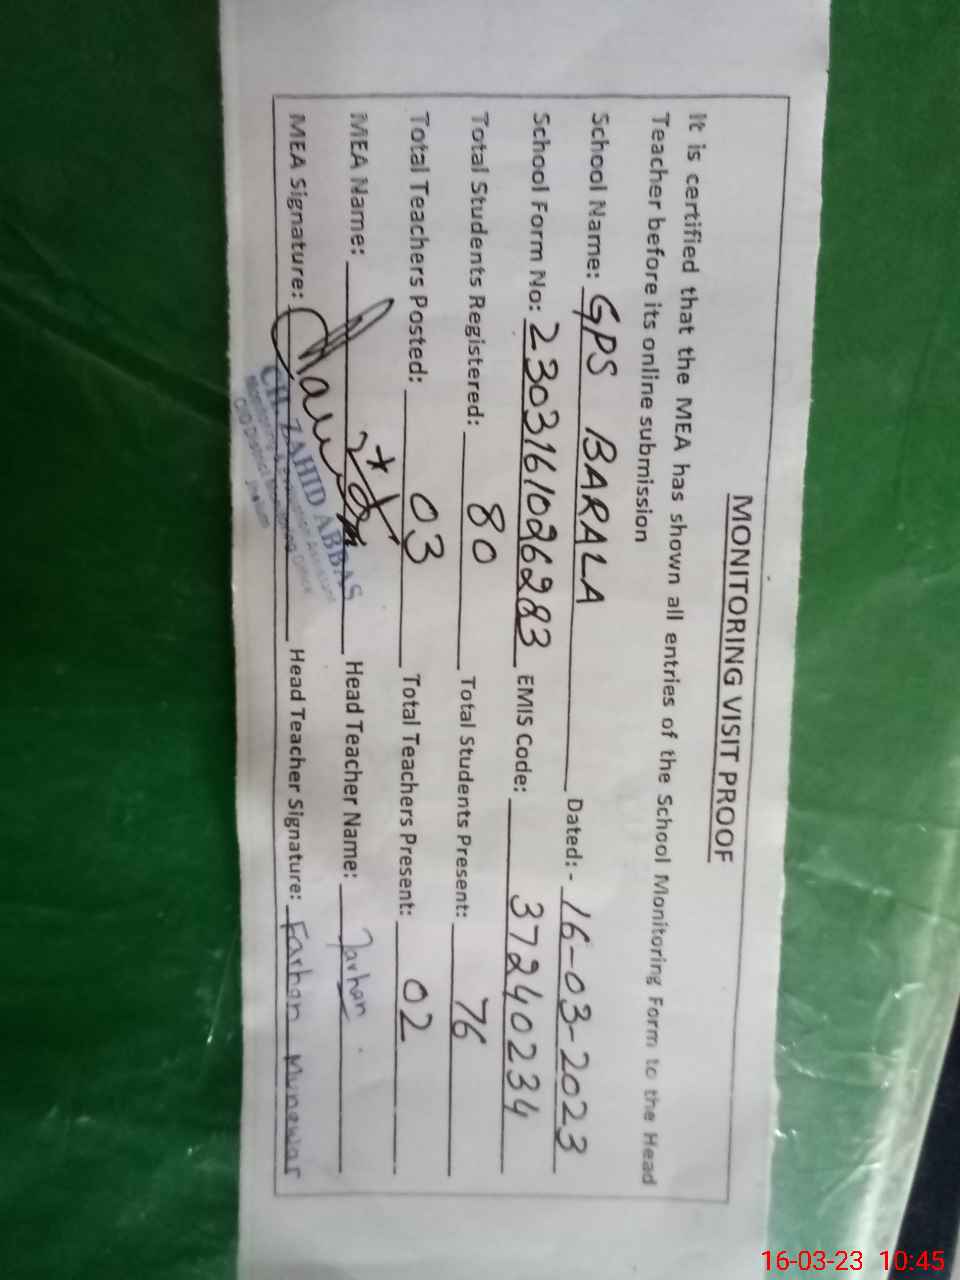 MONITORING VISIT PROOF
It is certified that the MEA has shown all entries of the School Monitoring Form to the Head
Teacher before its online submission
School Name: GPS BARALA Dated:- 16-03-2023
School Form No: 2303161026283 EMIS Code: 37240234
Total Students Registered: 80 Total Students Present: 76
Total Teachers Posted: 03 Total Teachers Present: 02
MEA Name: Head Teacher Name: Farhan
MEA Signature: Head Teacher Signature: Farhan Munawar
CH. ZAHID ABBAS
Monitoring & Evaluation Assistant
O/O District Monitoring Officer
Jhelum
16-03-23 10:45